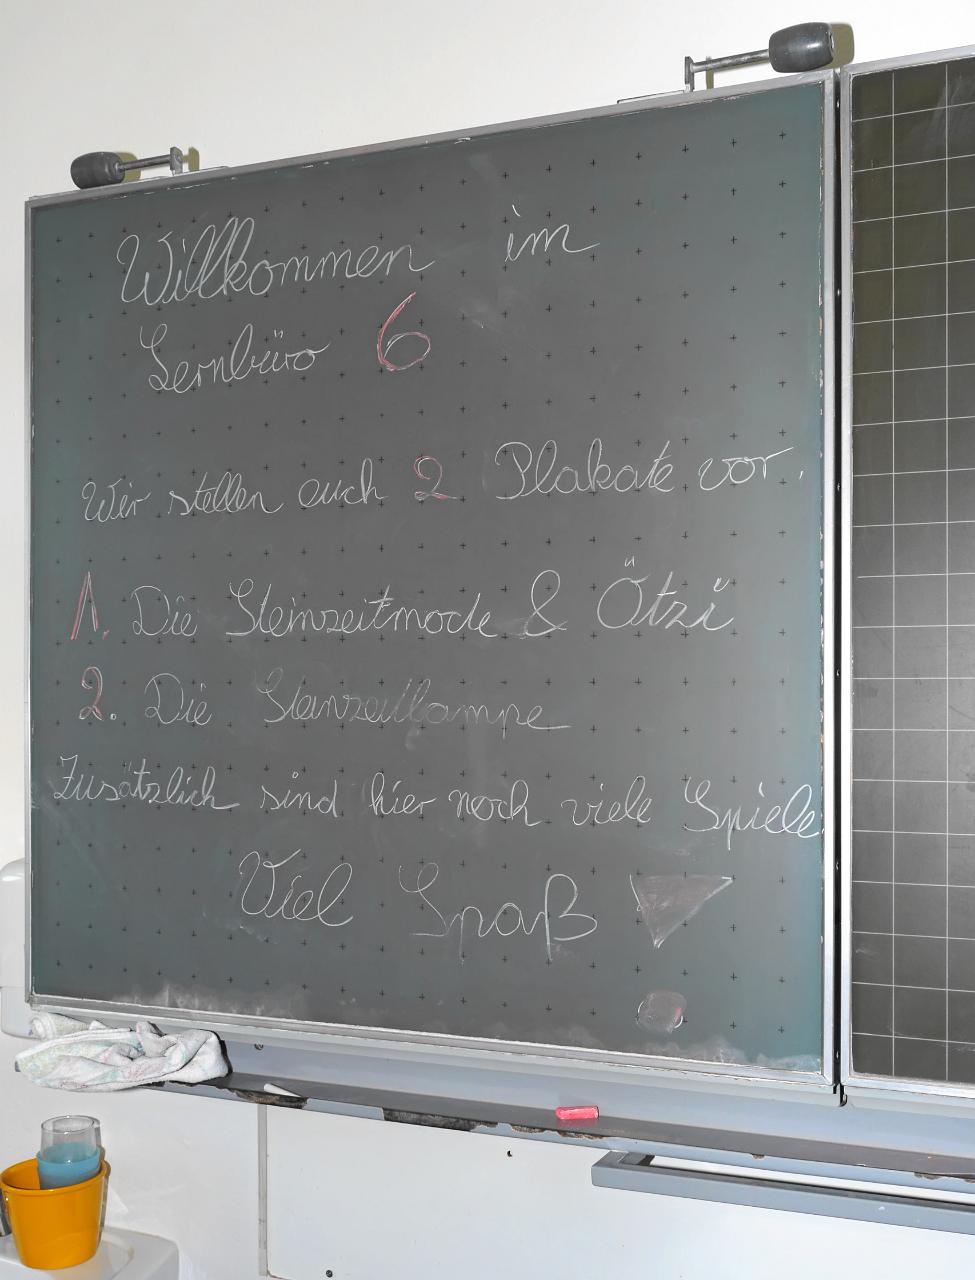 Willkommen im
Lernbüro 6
Wir stellen euch 2 Plakate vor.
1. Die Steinzeitmode & Ötzi
2. Die Steinzeitlampe
Zusätzlich sind hier noch viele Spiele.
Viel Spaß!